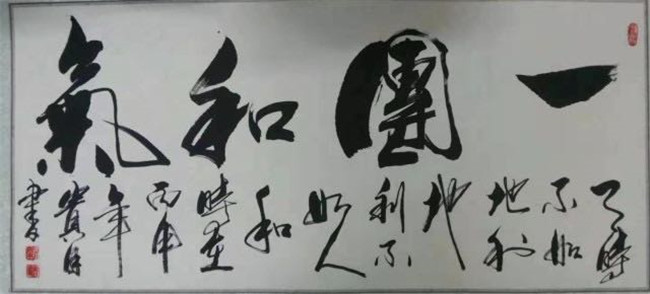 一團和氣
天時
不如
地利
地
利不
如人
和
時在
丙申
年
書